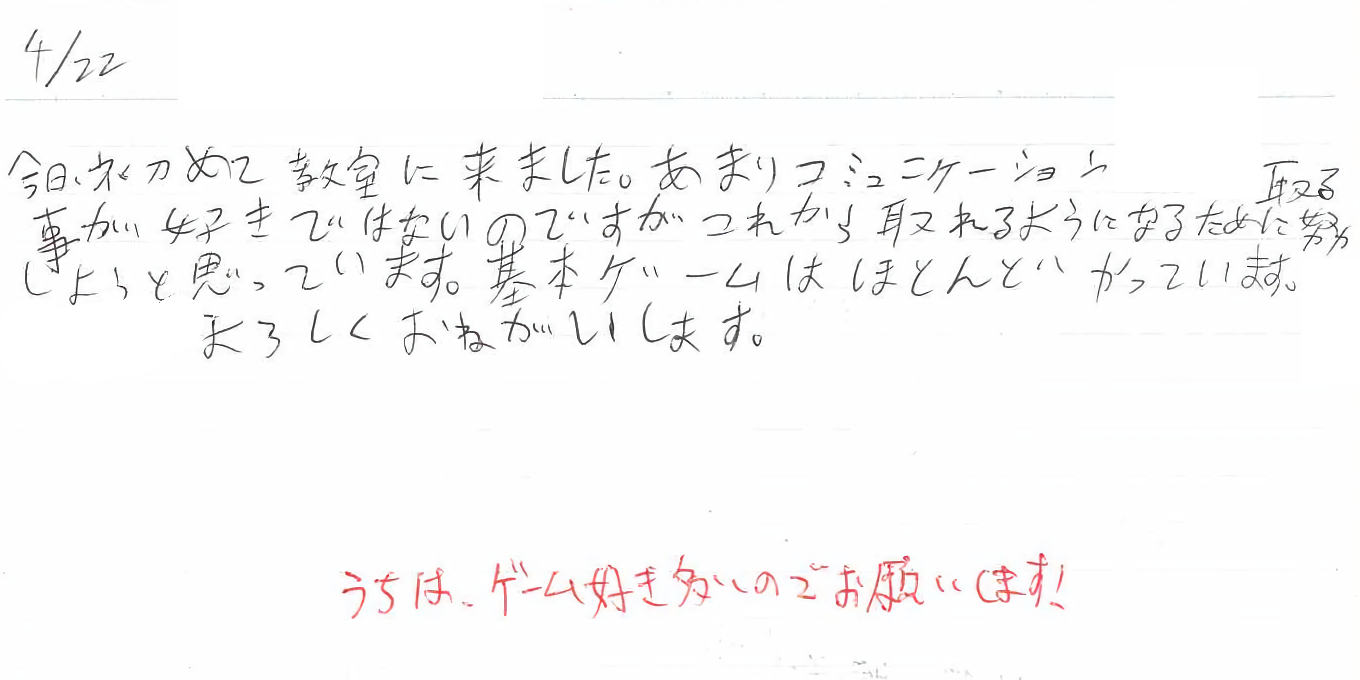 4/22
今日、初めて教室に来ました。あまりコミュニケーション取る
事が好きではないのですがこれから取れるようになるために努力
しようと思っています。基本ゲームはほとんどかっています。
よろしくおねがいします。
うちは、ゲーム好き多いのでお願いします!